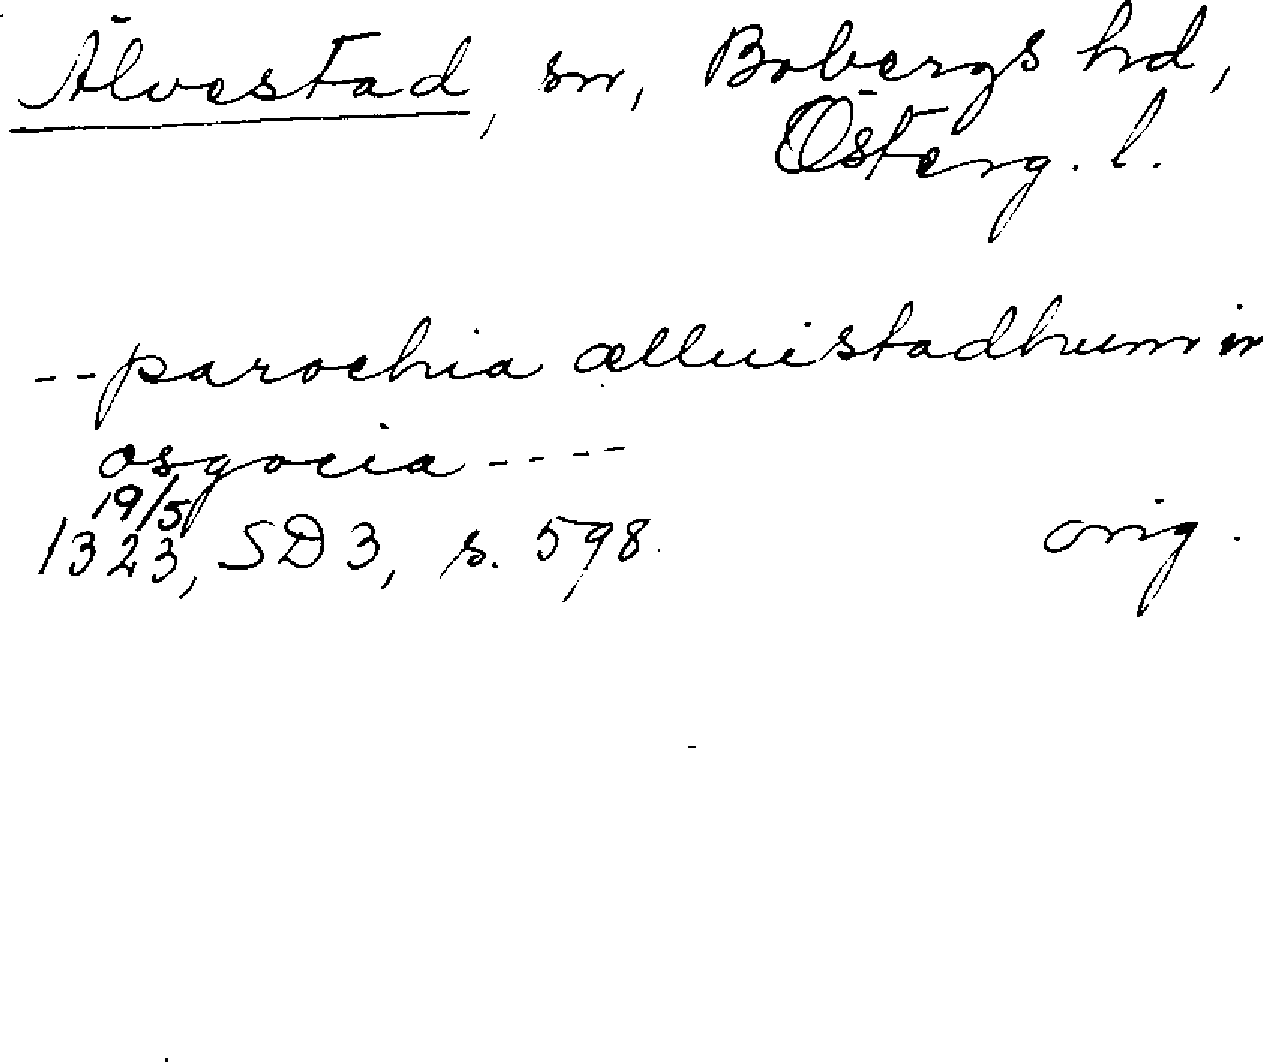 Älvestad, sn, Bobergs hd,
Österg. l.
--parochia ælluistadhum in
osgocia----
19/5
1323, SD 3, s. 598. orig.